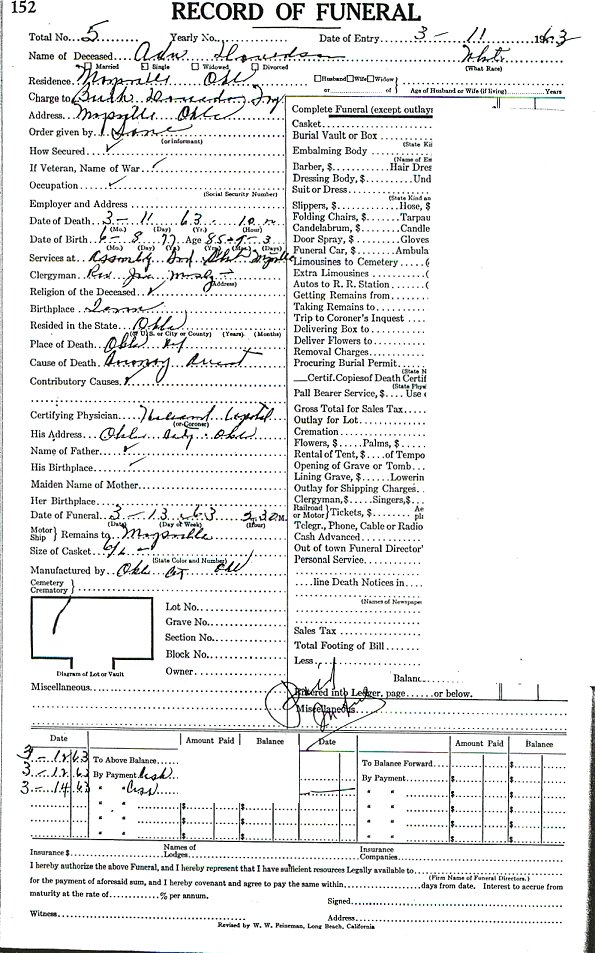 152
RECORD OF FUNERAL
Total No. 5 Yearly No. Date of Entry 3 - 11 1963
Name of Deceased White
Married Single Widowed Divorced (What Race)
Residence Maysville Okla Husband Wife Widow
or of Age of Husband or Wife (if living) Years
Charge to
Address Maysville Okla
Order given by Same
(or informant)
How Secured
If Veteran, Name of War
Occupation
(Social Security Number)
Employer and Address
Date of Death 3 - 11 63 - 10
(Mo.) (Day) (Yr.) (Hour)
Date of Birth 6 - 8 77 Age 85 - 9 - 3
(Mo.) (Day) (Yr.) (Yrs.) (Mos.) (Days)
Services at Assembly God Maysville
Clergyman Rev Jim
(Address)
Religion of the Deceased
Birthplace
Resided in the State Okla
(of U.S. or City or County) (Years) (Months)
Place of Death Okla
Cause of Death
Contributory Causes
Certifying Physician
(or Coroner)
His Address Okla City - Okla
Name of Father
His Birthplace
Maiden Name of Mother
Her Birthplace
Date of Funeral 3 - 13 - 63 2:30
(Date) (Day of Week) (Hour)
Motor Ship Remains to Maysville
Size of Casket 6/6
(State Color and Number)
Manufactured by Okla Cty Okl
Cemetery
Crematory
Lot No.
Grave No.
Section No.
Block No.
Owner
Diagram of Lot or Vault
Miscellaneous
Complete Funeral (except outlays
Casket
Burial Vault or Box
(State Ki
Embalming Body
(Name of E
Barber, $ Hair Dres
Dressing Body, $ Und
Suit or Dress
(State Kind an
Slippers, $ Hose, $
Folding Chairs, $ Tarpau
Candelabrum, $ Candle
Door Spray, $ Gloves
Funeral Car, $ Ambula
Limousines to Cemetery (
Extra Limousines (
Autos to R. R. Station (
Getting Remains from
Taking Remains to
Trip to Coroner's Inquest
Delivering Box to
Deliver Flowers to
Removal Charges
Procuring Burial Permit
(State N
Certif. Copies of Death Certif
(State Phys
Pall Bearer Service, $ Use
Gross Total for Sales Tax
Outlay for Lot
Cremation
Flowers, $ Palms, $
Rental of Tent, $ of Tempo
Opening of Grave or Tomb
Lining Grave, $ Lowerin
Outlay for Shipping Charges
Clergyman, $ Singers, $
Railroad or Motor Tickets, $
Telegr., Phone, Cable or Radio
Cash Advanced
Out of town Funeral Director'
Personal Service
line Death Notices in
(Names of Newspape
Sales Tax
Total Footing of Bill
Less
Balanc
Entered into Ledger, page or below.
Miscellaneous
Date Amount Paid Balance Date Amount Paid Balance
3 - 12 63 To Above Balance To Balance Forward $
3 - 12 63 By Payment Cash By Payment $ $
3 - 14 63 " " Cash " " $ $
" " $ $ " " $ $
" " $ $ " " $ $
" " $ $ " " $ $
Insurance $ Names of Lodges Insurance Companies
I hereby authorize the above Funeral, and I hereby represent that I have sufficient resources Legally available to
(Firm Name of Funeral Directors.)
for the payment of aforesaid sum, and I hereby covenant and agree to pay the same within days from date. Interest to accrue from
maturity at the rate of % per annum.
Signed
Witness Address
Revised by W. W. Feineman, Long Beach, California